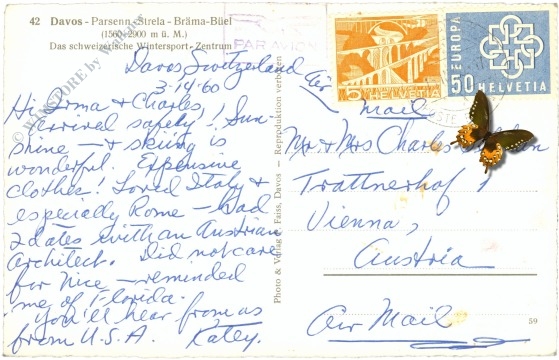 42 Davos - Parsenn - Strela - Bräma-Büel
(1560-2900 m ü. M.)
Das schweizerische Wintersport-Zentrum
PAR AVION
HELVETIA
EUROPA
50 HELVETIA
Davos Switzerland
3-14-60
Hi Irma & Charles,
Arrived safely! Sun-
shine - & skiing is
wonderful. Expensive
clothes! Loved Italy &
especially Rome - Had
2 dates with an Austrian
Architect. Did not care
for Nice - reminded
me of Florida.
You'll hear from us
from U.S.A. Katey.
Photo & Verlag Faiss, Davos - Reproduktion verboten
Air
Mail
Mr. & Mrs Charles
Trattnerhof 1
Vienna,
Austria
Air Mail
59